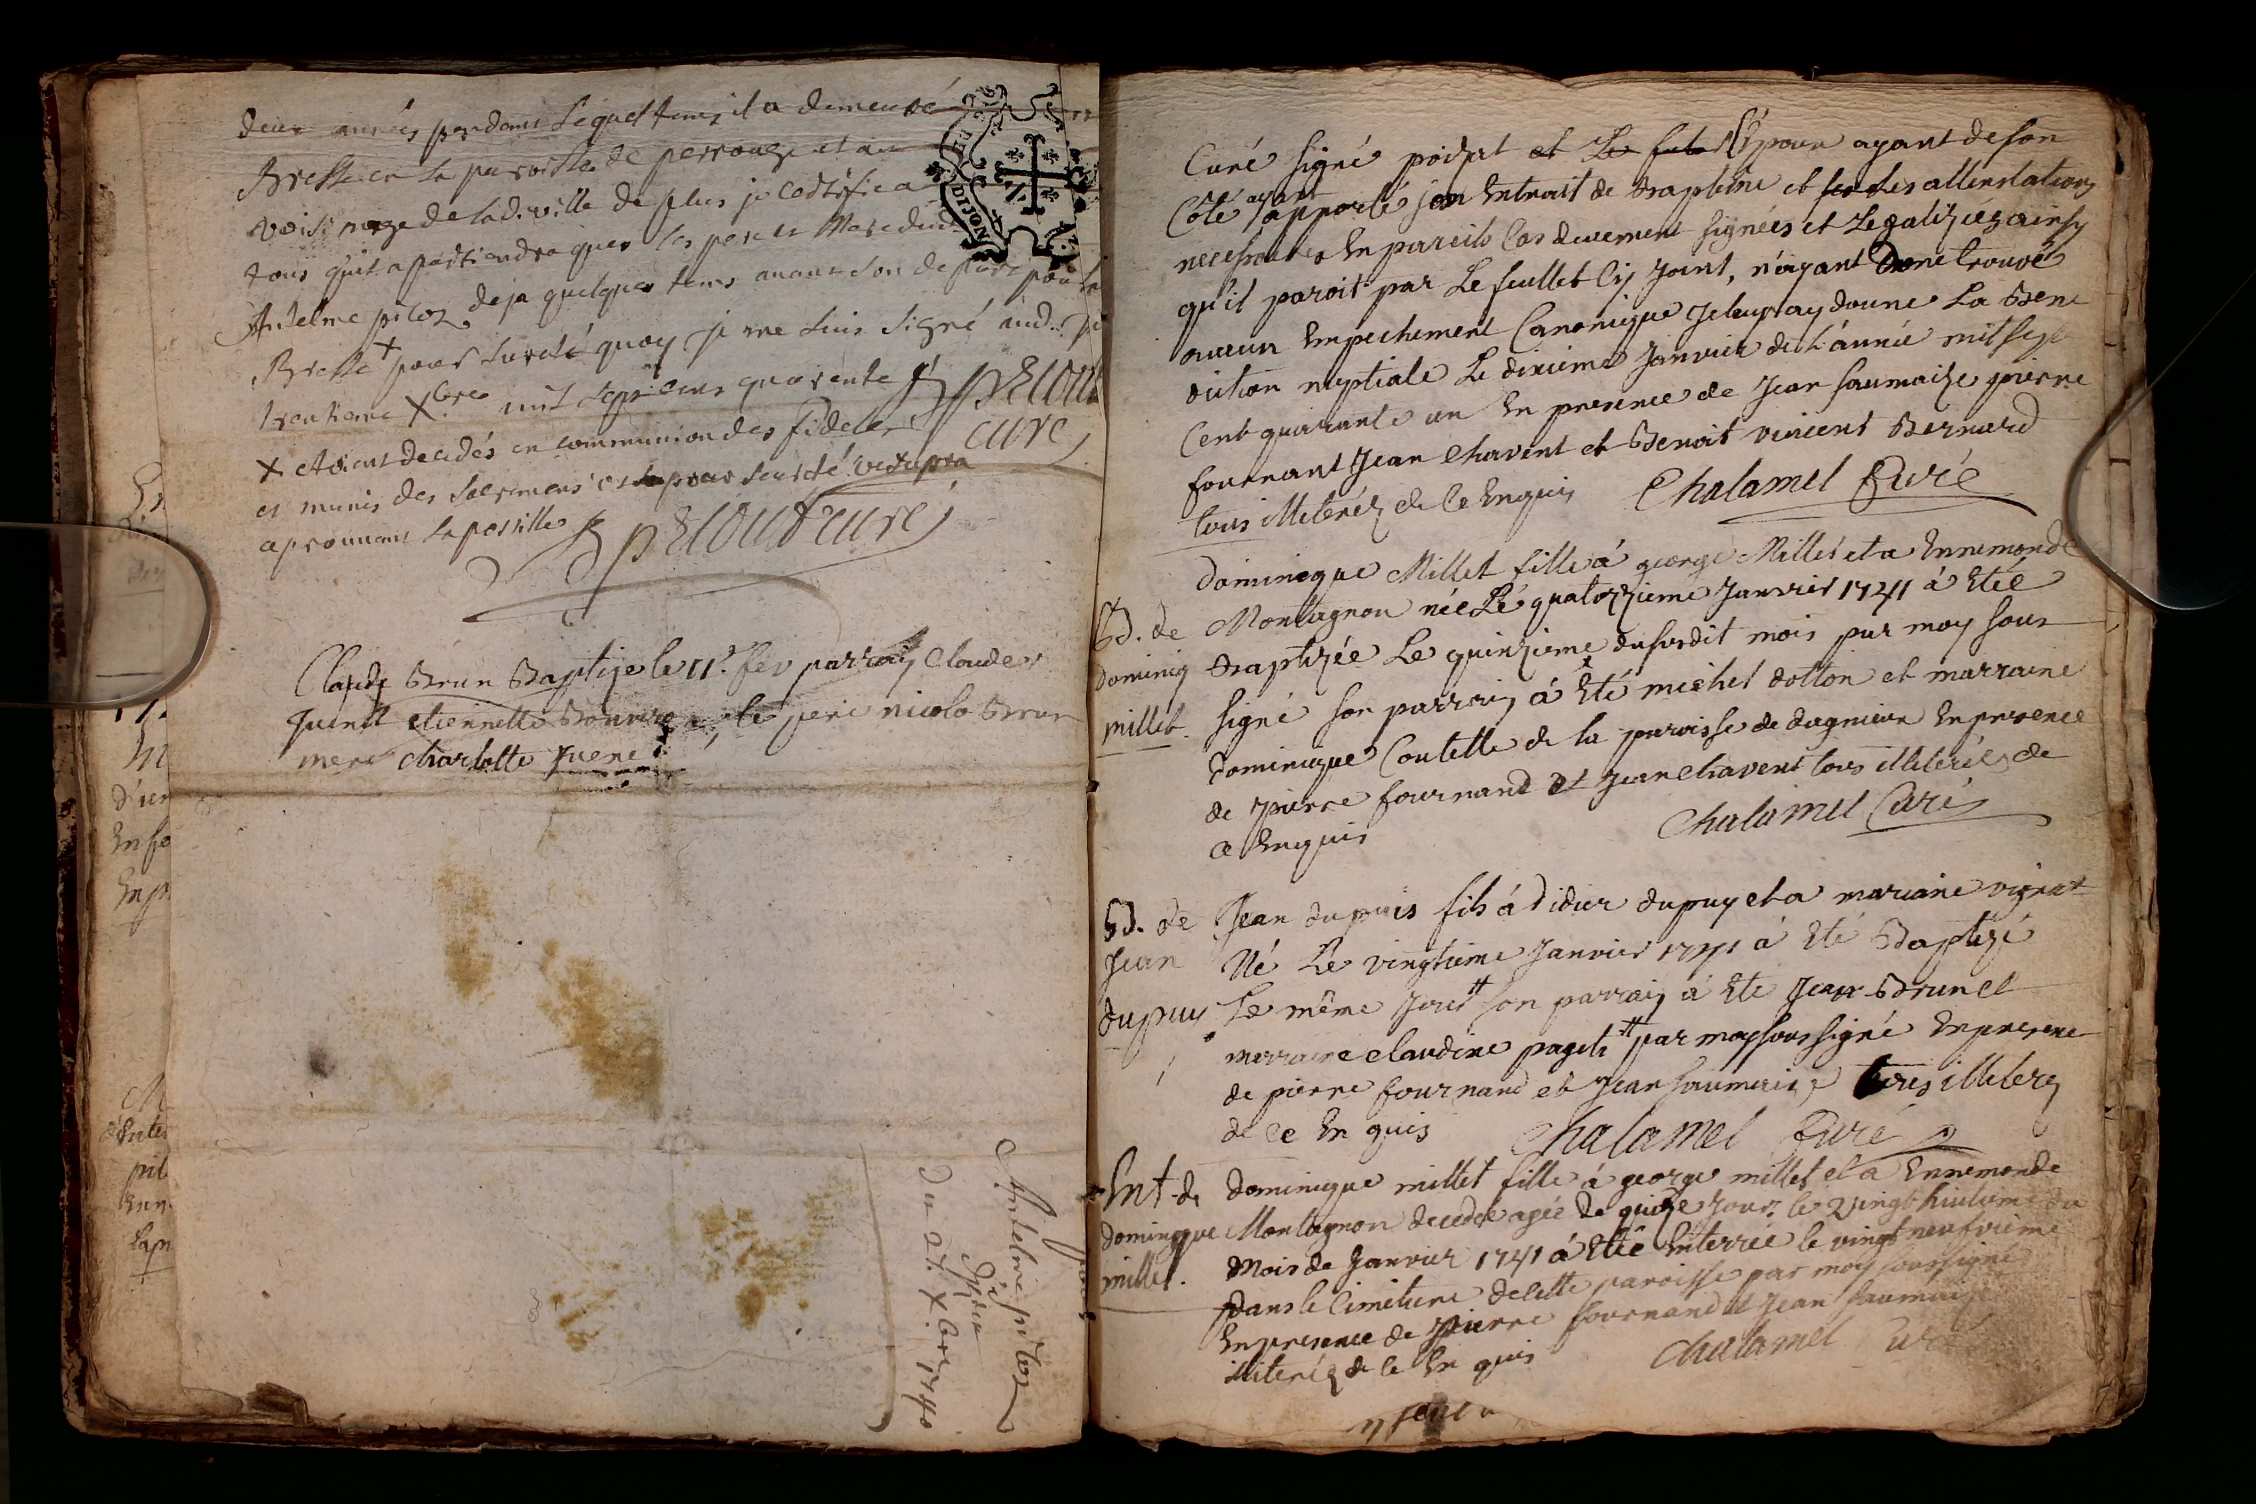 deux années pendant lequel tems il a demeuré
Bresse en la paroisse de perrouge et au
voisinage de lad. ville de plus je certifie a
tous qu'il apartiendra que les pere et Mere dud
Antelme piloz deja quelques tems avant son depart pour la
Bresse + pour sureté quoy je me suis signé aud.
trentieme Xbre mil sept cens quarente
curé
+ etoient decedés en communion des fideles
et munis des sacremens et pour seureté ut supra
aprouvant la postille
curé
Claude Brun Baptise le 11e fev parrain Claude
Juenet etiennette le pere nicola Brun
mere Charlotte Juene
Antelme piloz
Du 27 Xbre 1740
DIJON
Curé signé poizat et Le futur Epoux ayant de son
Côté ayant apporté son Extrait de Baptême et les attestations
necessaires En pareils Cas deuement signées et Legalizées ainsy
qu'il paroit par Le feuillet Cy Joint, n'ayant Donc trouvé
aucun Empechement Canonique Je leur ay donné La Bene
diction nuptiale Le dixieme Janvier de L'année mil sept
Cent quarante un En presence de Jean saumaize pierre
fournant Jean Chavent et Benoit vincent Bernard
tous illiteréz de Ce Enquis Chalamel Curé
Dominique Millet fille à george Millet et a Ennemonde
Montagnon née Le quatorzieme Janvier 1741 à Eté
Baptizée Le quinzieme du susdit mois par moy sous
signé son parrain à Eté michel dotton et marraine
Dominique Coutette de la paroisse de dagnieux En presence
de pierre fournand et Jean Chavent tous illiteréz de
Ce Enquis Chalamel Curé
B. de
Dominiq
millet.
Jean dupuis fils à didier dupuy et a mariane vignat
Né Le vingtieme Janvier 1741 à Eté Baptizé
Le même Jour # son parrain à Eté Jean Brunet
marraine Claudine paget # par moy soussigné En presence
de pierre fournand et Jean saumaize tous illiterez
de Ce Enquis Chalamel Curé
B. de
Jean
dupuy
Dominique millet fille à george millet et a Ennemonde
Montagnon decedée agée de quinze Jours le Vingt huitieme du
Mois de Janvier 1741 à Eté Enterrée le vingt neufvieme
Dans le Cimetiere de cette paroisse par moy soussigné
En presence de pierre fournand et Jean saumaize
illiteréz de Ce Enquis Chalamel Curé
Ent. de
Dominique
millet.